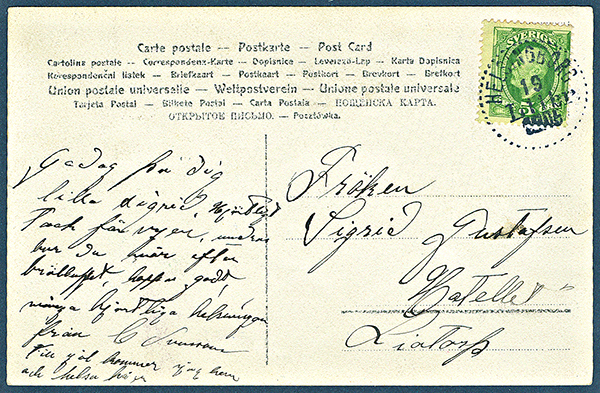 Carte postale — Postkarte — Post Card
Cartolina postale — Correspondenz-Karte — Dopisnica — Levelezö-Lap — Karta Dopisnica
Korespondenční lístek — Briefkaart — Postkaart — Postkort — Brevkort — Brefkort
Union postale universelle — Weltpostverein — Unione postale universale
Tarjeta Postal — Bilhete Postal — Carta Postala — ПОЩЕНСКА КАРТА.
ОТКРЫТОЕ ПИСЬМО. — Pocztówka.
SVERIGE
15
1905
Godag på dig
lilla Sigrid, Hjärtligt
Tack för vyer, undrar
hur du mår efter
bröllopet, hoppas godt,
många hjertliga helsningar
från C Svensson
Till jul kommer jag hem
och helsar
Fröken
Sigrid Gustafsen
Hotellet
Liatorp